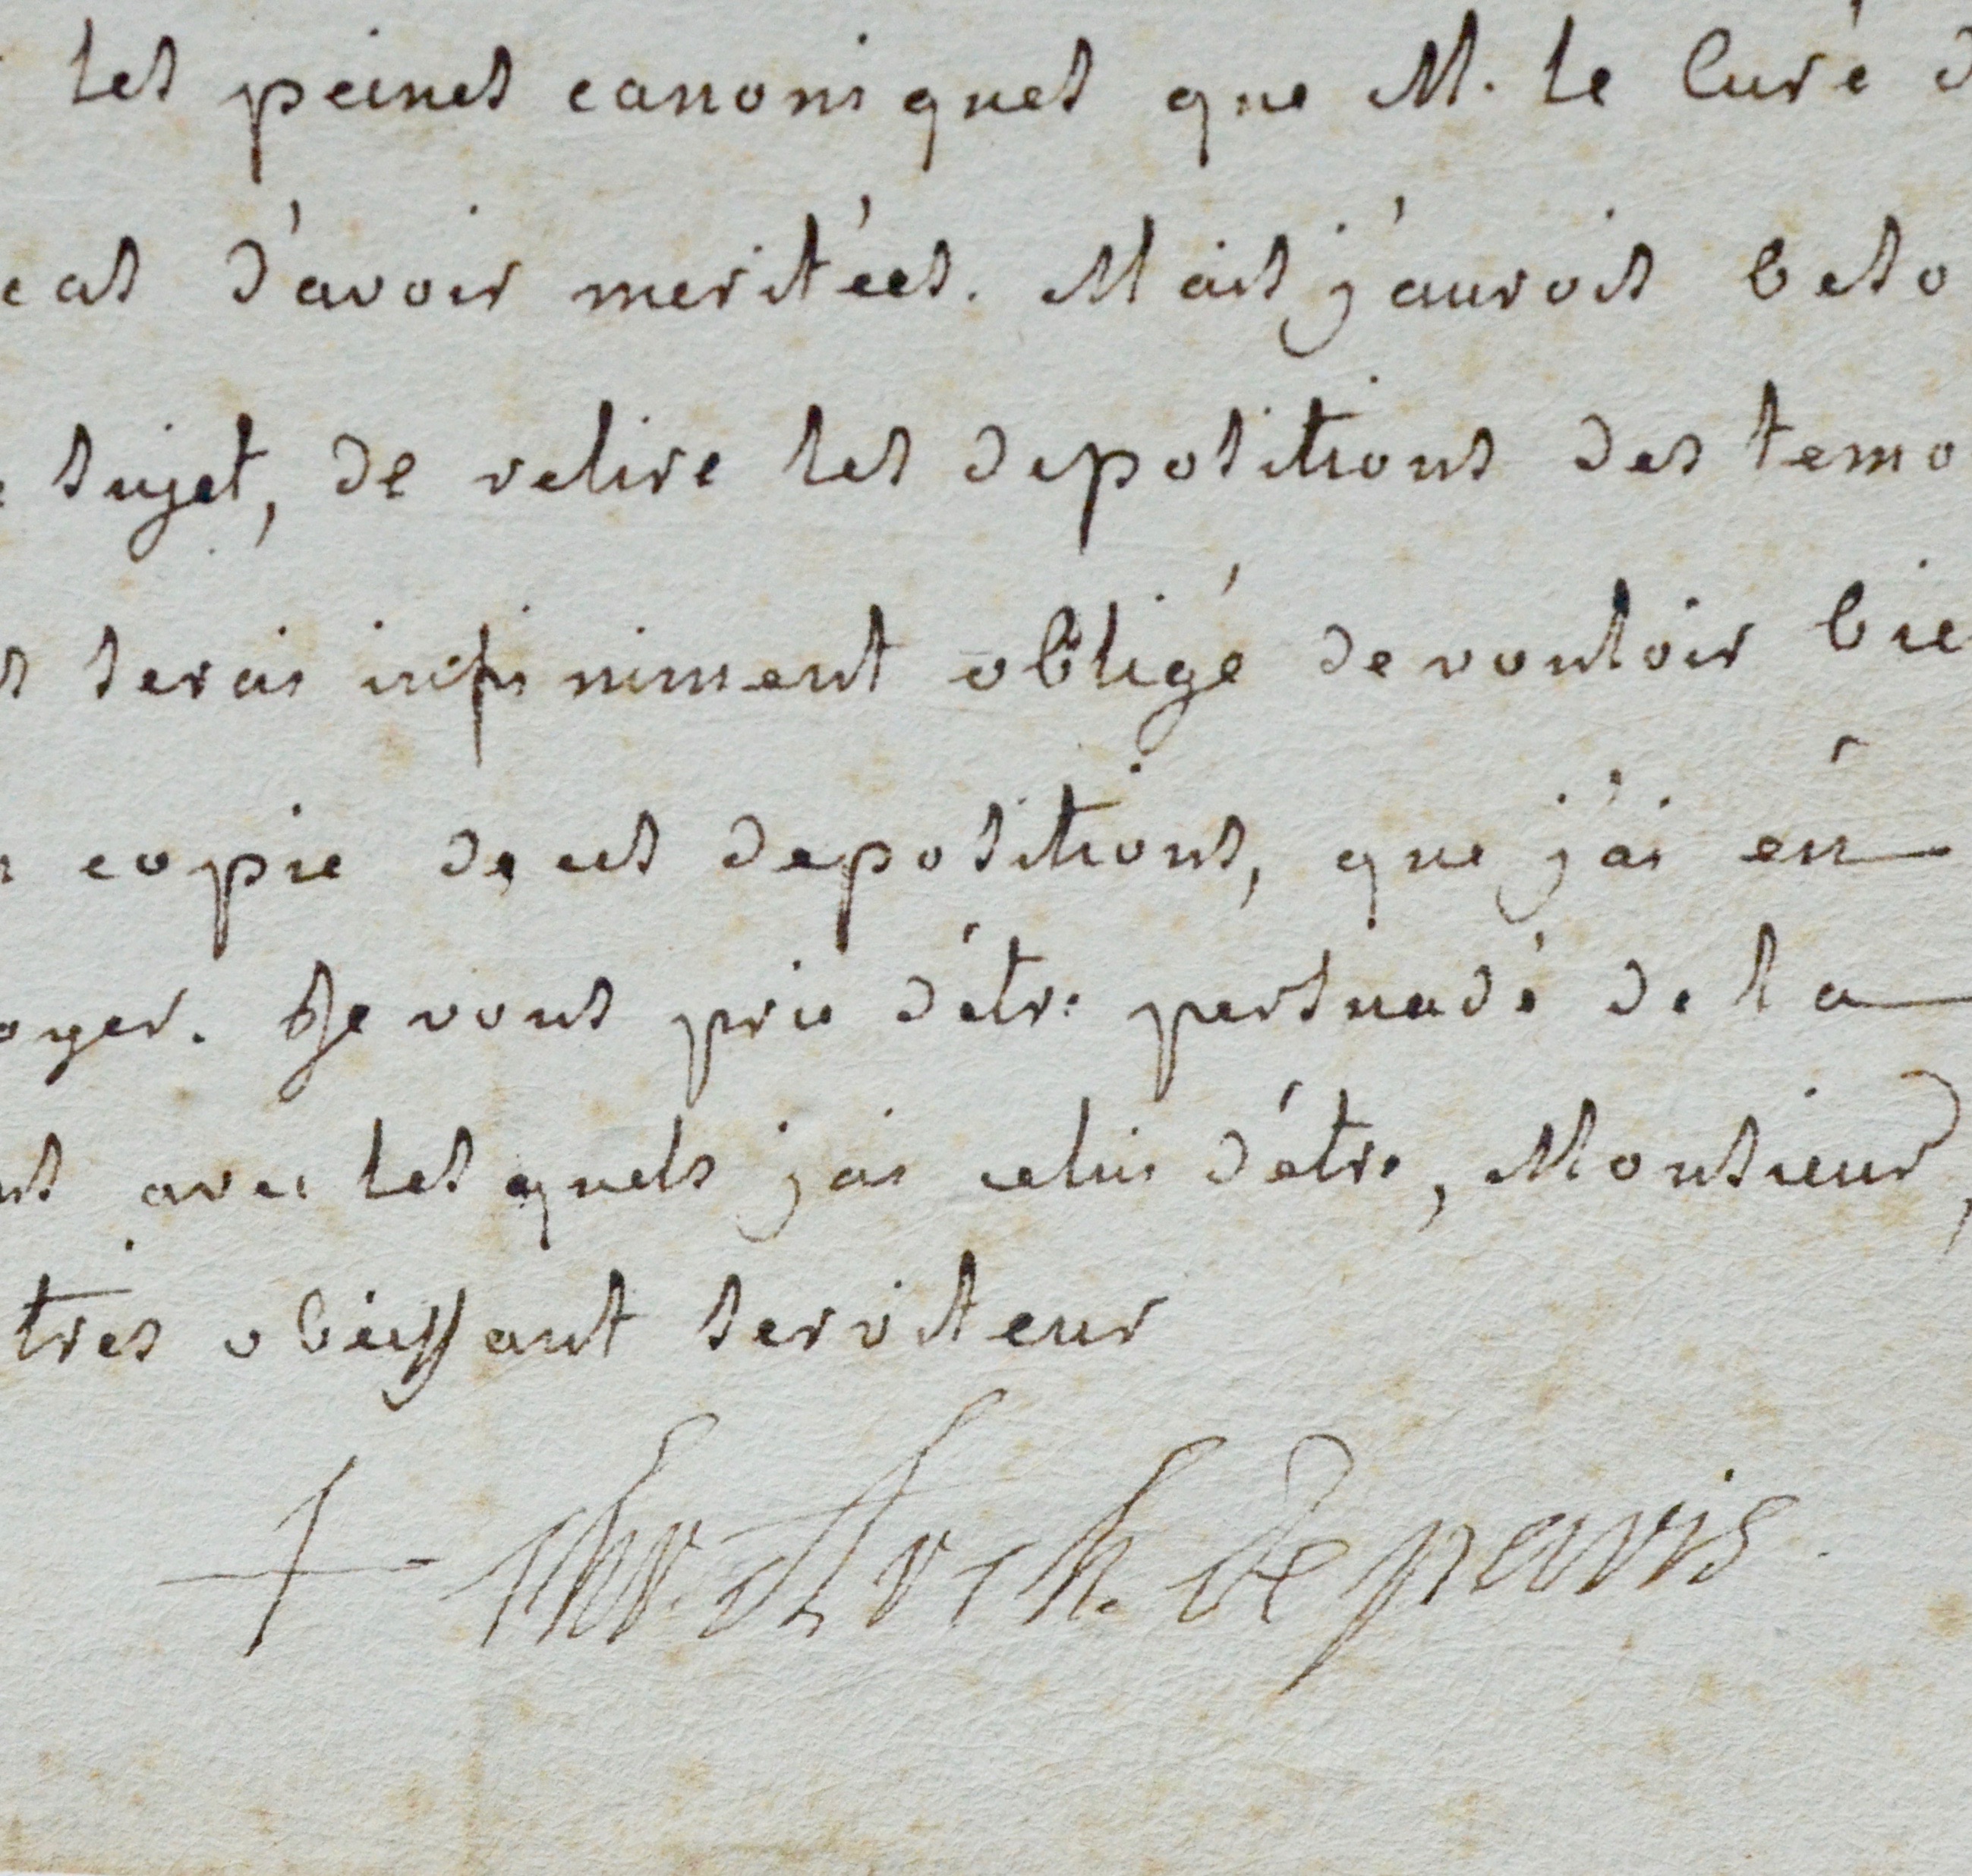 les peines canoniques que M. le Curé d
cas d'avoir merités. Mais j'aurois beso
sujet, de relire les depositions des temo
serais infiniment obligé de vouloir bie
copie de ces depositions, que j'ai eû
oyer. Je vous prie d'être persuadé de la
avec lesquels j'ai celui d'être, Monsieur,
tres obéissant serviteur
+ Chr. Arch. de paris